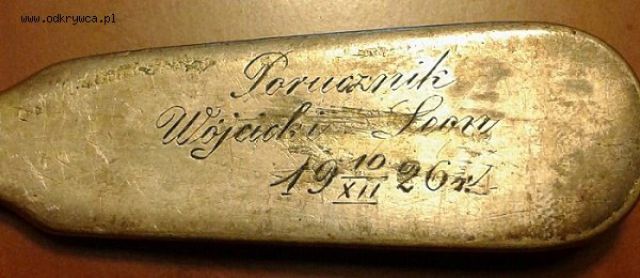 www.odkrywca.pl
Porucznik
Wójcicki Leon
19 10/XII 26 r.